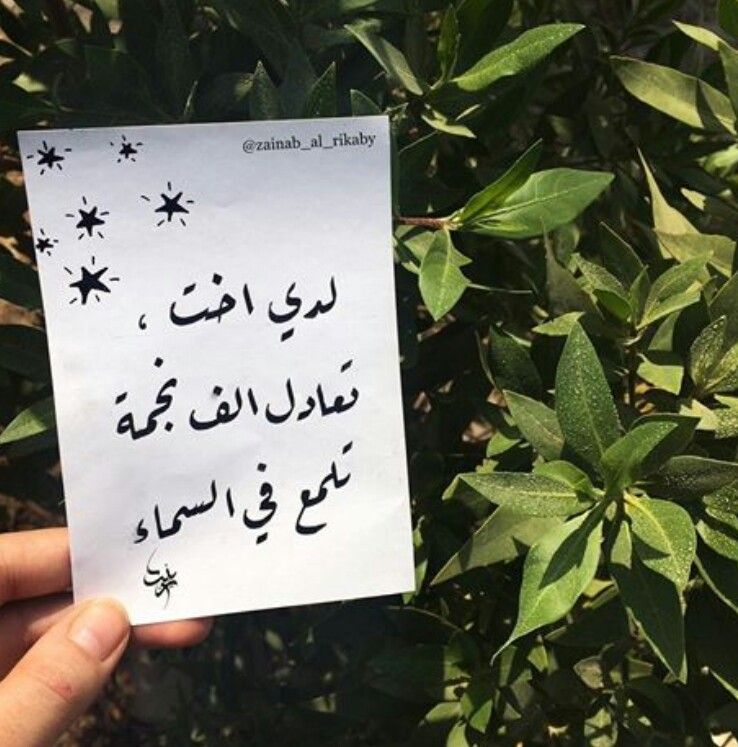 @zainab_al_rikaby
لدي اخت ،
تعادل الف نجمة
تلمع في السماء